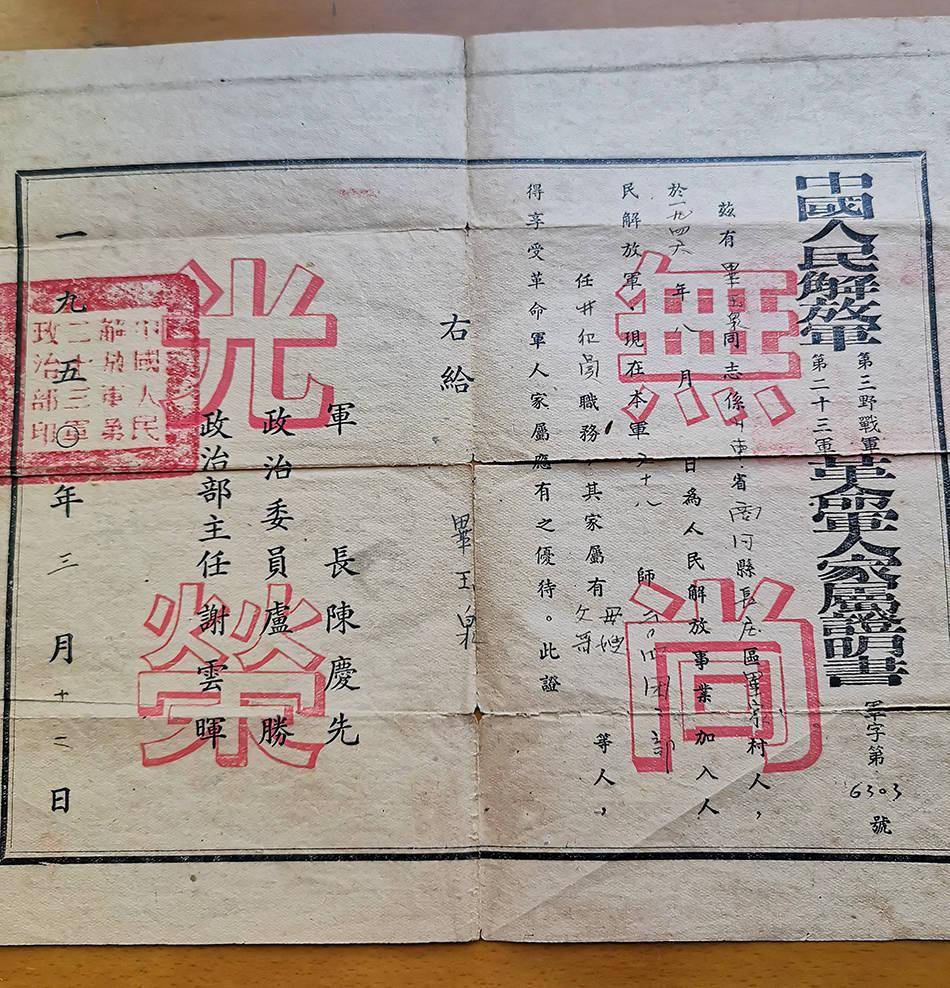 中國人民解放軍
第三野戰軍
第二十三軍
革命軍人家屬證明書
軍字第6303號
茲有畢玉泉同志係山東省商河縣長庄區畢家村人，
於一九四六年八月 日為人民解放事業加入人
民解放軍，現在本軍 師 部
任 職務，其家屬有 等人，
得享受革命軍人家屬應有之優待。此證
右給
畢玉泉
軍長陳慶先
政治委員盧勝
政治部主任謝雲暉
一九五〇年三月十二日
無尚光榮
中國人民
解放軍第
二十三軍
政治部印